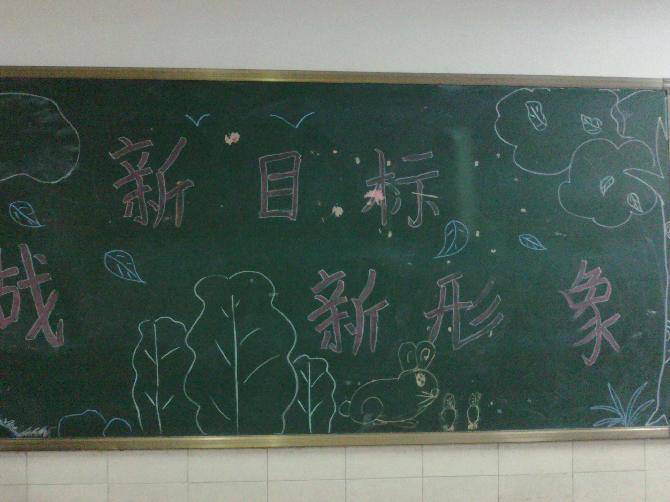 新目标
战 新形象